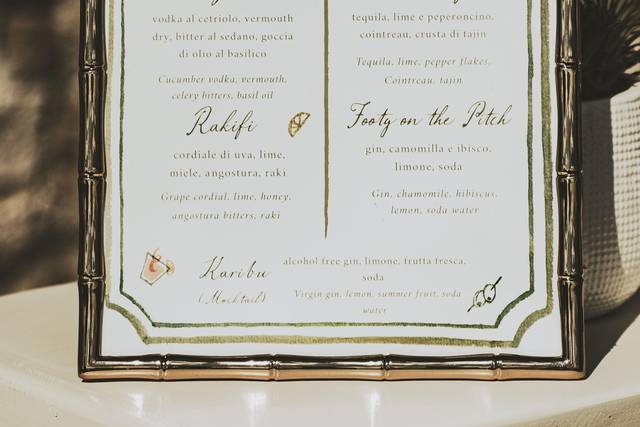 vodka al cetriolo, vermouth
dry, bitter al sedano, goccia
di olio al basilico
Cucumber vodka, vermouth,
celery bitters, basil oil
Rakifi
cordiale di uva, lime,
miele, angostura, raki
Grape cordial, lime, honey,
angostura bitters, raki
tequila, lime e peperoncino,
cointreau, crusta di tajin
Tequila, lime, pepper flakes,
Cointreau, tajin
Footy on the Pitch
gin, camomilla e ibisco,
limone, soda
Gin, chamomile, hibiscus,
lemon, soda water
Karibu
(Mocktail)
alcohol free gin, limone, frutta fresca,
soda
Virgin gin, lemon, summer fruit, soda
water